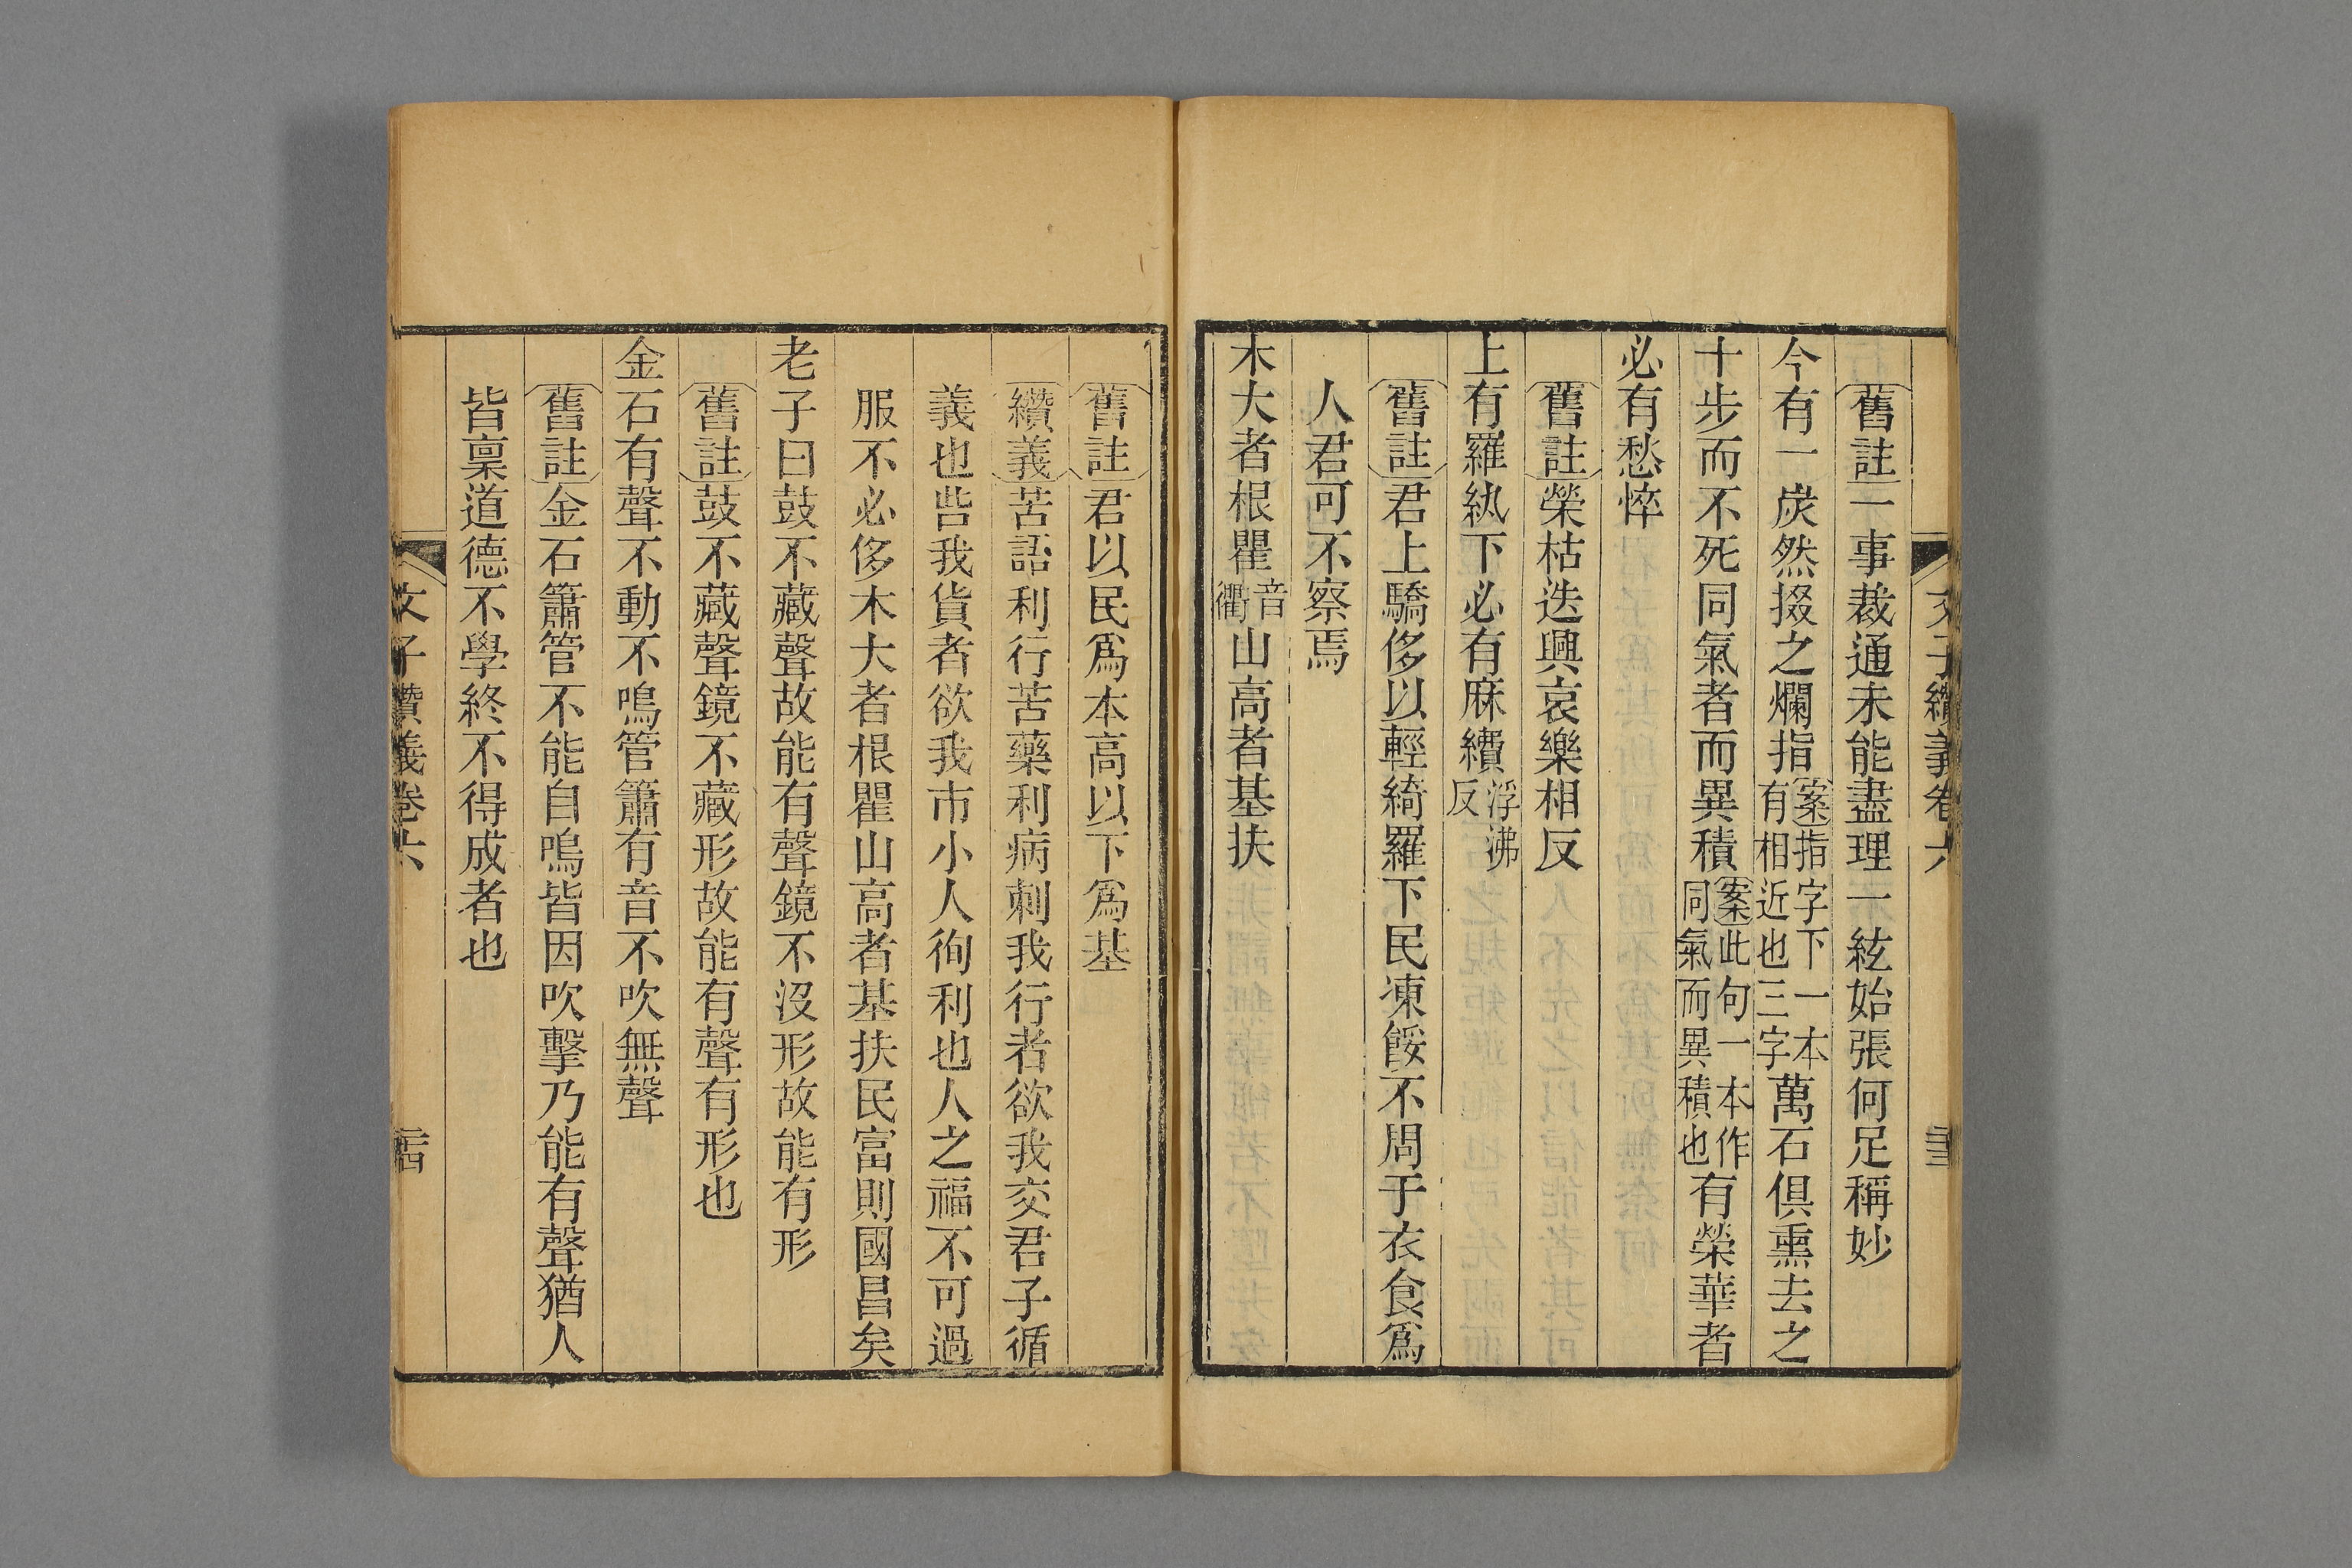 文子纘義卷六
舊註一事裁通未能盡理一絃始張何足稱妙
今有一炭然掇之爛指案指字下一本有相近也三字萬石俱熏去之
十步而不死同氣者而異積案此句一本作同氣而異積也有榮華者
必有愁悴
舊註榮枯迭興哀樂相反
上有羅紈下必有麻䌇浮沸反
舊註君上驕侈以輕綺羅下民凍餒不周于衣食爲
人君可不察焉
木大者根瞿音衢山高者基扶
舊註君以民爲本高以下爲基
纘義苦語利行苦藥利病刺我行者欲我交君子循
義也呰我貨者欲我市小人徇利也人之福不可過
服不必侈木大者根瞿山高者基扶民富則國昌矣
老子曰鼓不藏聲故能有聲鏡不沒形故能有形
舊註鼓不藏聲鏡不藏形故能有聲有形也
金石有聲不動不鳴管簫有音不吹無聲
舊註金石簫管不能自鳴皆因吹擊乃能有聲猶人
皆稟道德不學終不得成者也
文子纘義卷六